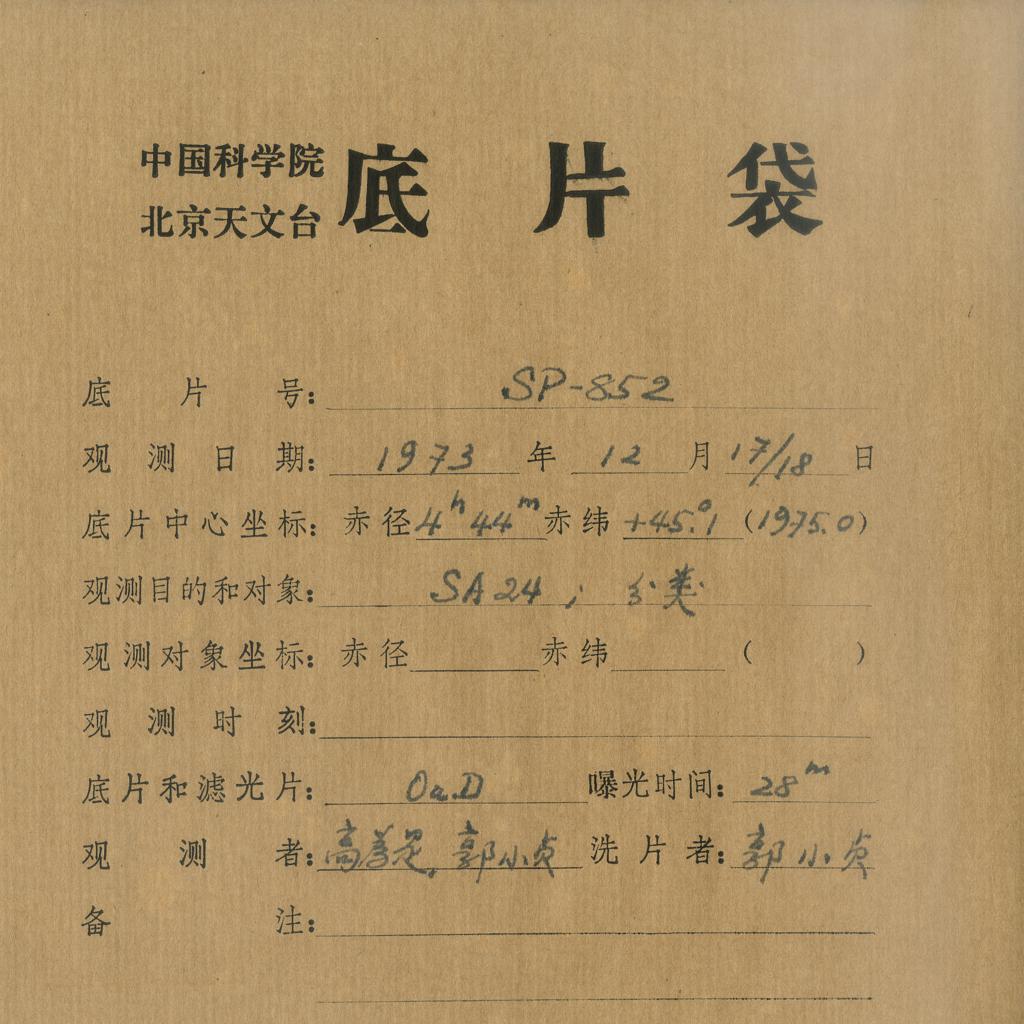 中国科学院
北京天文台
底片袋
底片号：SP-852
观测日期：1973年12月17/18日
底片中心坐标：赤径4ʰ44ᵐ赤纬+45.°1（1975.0）
观测目的和对象：SA24；分类
观测对象坐标：赤径 赤纬 （ ）
观测时刻：
底片和滤光片：OaD 曝光时间：28ᵐ
观测者：高 郭小贞 洗片者：郭小贞
备注：